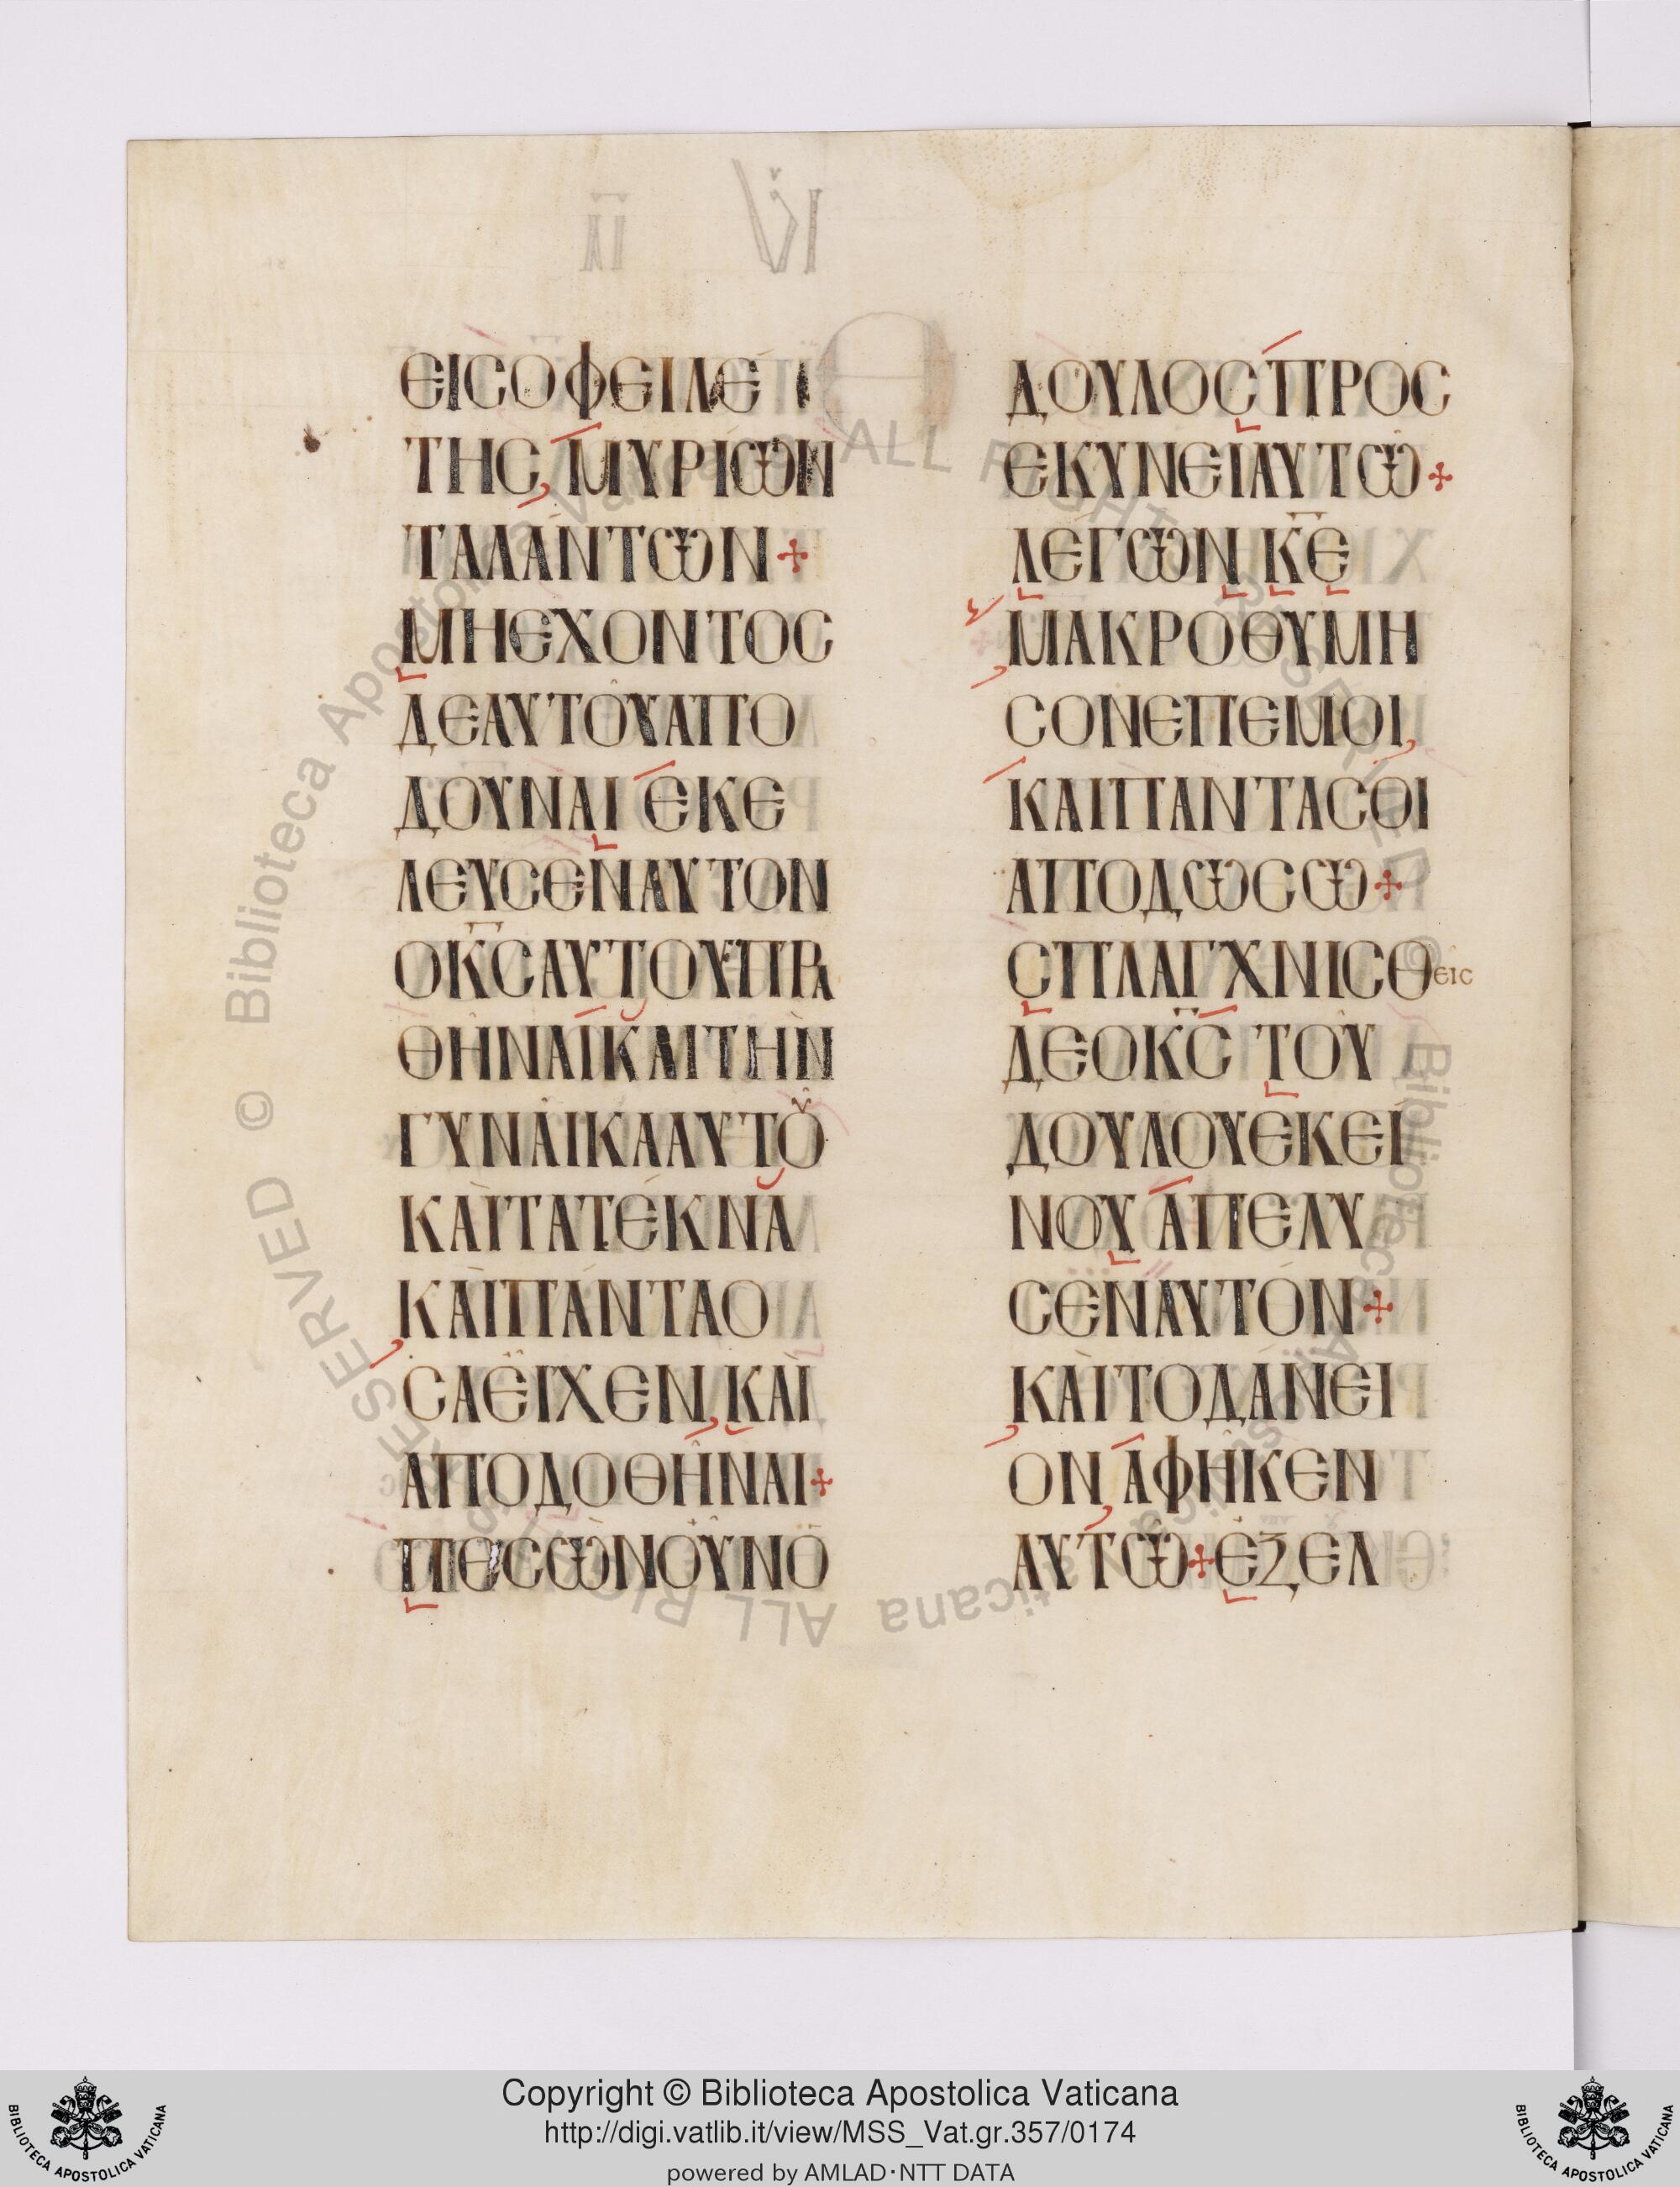 ΕΙСΟΦΕΙΛΕ
ΤΗС ΜΥΡΙΩΝ
ΤΑΛΑΝΤΩΝ+
ΜΗΕΧΟΝΤΟС
ΔΕΑΥΤΟΥΑΠΟ
ΔΟΥΝΑΙ ΕΚΕ
ΛΕΥСΕΝΑΥΤΟΝ
ΟΚ̅С̅ΑΥΤΟΥΠΡΑ
ΘΗΝΑΙΚΑΙΤΗΝ
ΓΥΝΑΙΚΑΑΥΤΟΥ
ΚΑΙΤΑΤΕΚΝΑ
ΚΑΙΠΑΝΤΑΟ
СΑΕΙΧΕΝ, ΚΑΙ
ΑΠΟΔΟΘΗΝΑΙ+
ΠΕСΩΝΟΥΝΟ
ΔΟΥΛΟС ΠΡΟС
ΕΚΥΝΕΙΑΥΤΩ+
ΛΕΓΩΝ Κ̅Ε̅
ΜΑΚΡΟΘΥΜΗ
СΟΝΕΠΕΜΟΙ,
ΚΑΙΠΑΝΤΑСΟΙ
ΑΠΟΔΩСΩ+
СΠΛΑΓΧΝΙСΘΕΙС
ΔΕΟΚ̅С̅ ΤΟΥ
ΔΟΥΛΟΥΕΚΕΙ
ΝΟΥ ΑΠΕΛΥ
СΕΝΑΥΤΟΝ+
ΚΑΙΤΟΔΑΝΕΙ
ΟΝ, ΑΦΗΚΕΝ
ΑΥΤΩ+ΕΞΕΛ
© Biblioteca Apostolica Vaticana ALL RIGHTS RESERVED
© Biblioteca Apostolica Vaticana ALL RIGHTS RESERVED
Copyright © Biblioteca Apostolica Vaticana
http://digi.vatlib.it/view/MSS_Vat.gr.357/0174
powered by AMLAD·NTT DATA
BIBLIOTECA APOSTOLICA VATICANA
BIBLIOTECA APOSTOLICA VATICANA